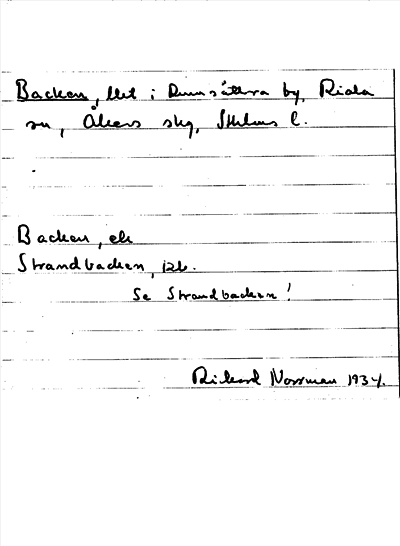 Backen, lht i Rumsättra by, Riala
sn, Åkers skg, Sthlms l.
Backen, el.
Strandbacken, tzb.
Se Strandbacken!
Rikard Norrman 1934.